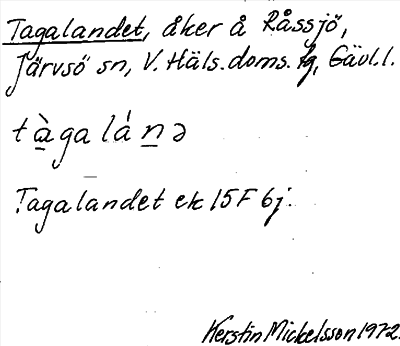 Tagalandet, åker å Råssjö,
Järvsö sn, V. Häls. doms. tg, Gävl. l.
tàgaláṉə
Tagalandet ek 15F 6j.
Kerstin Mickelsson 1972.